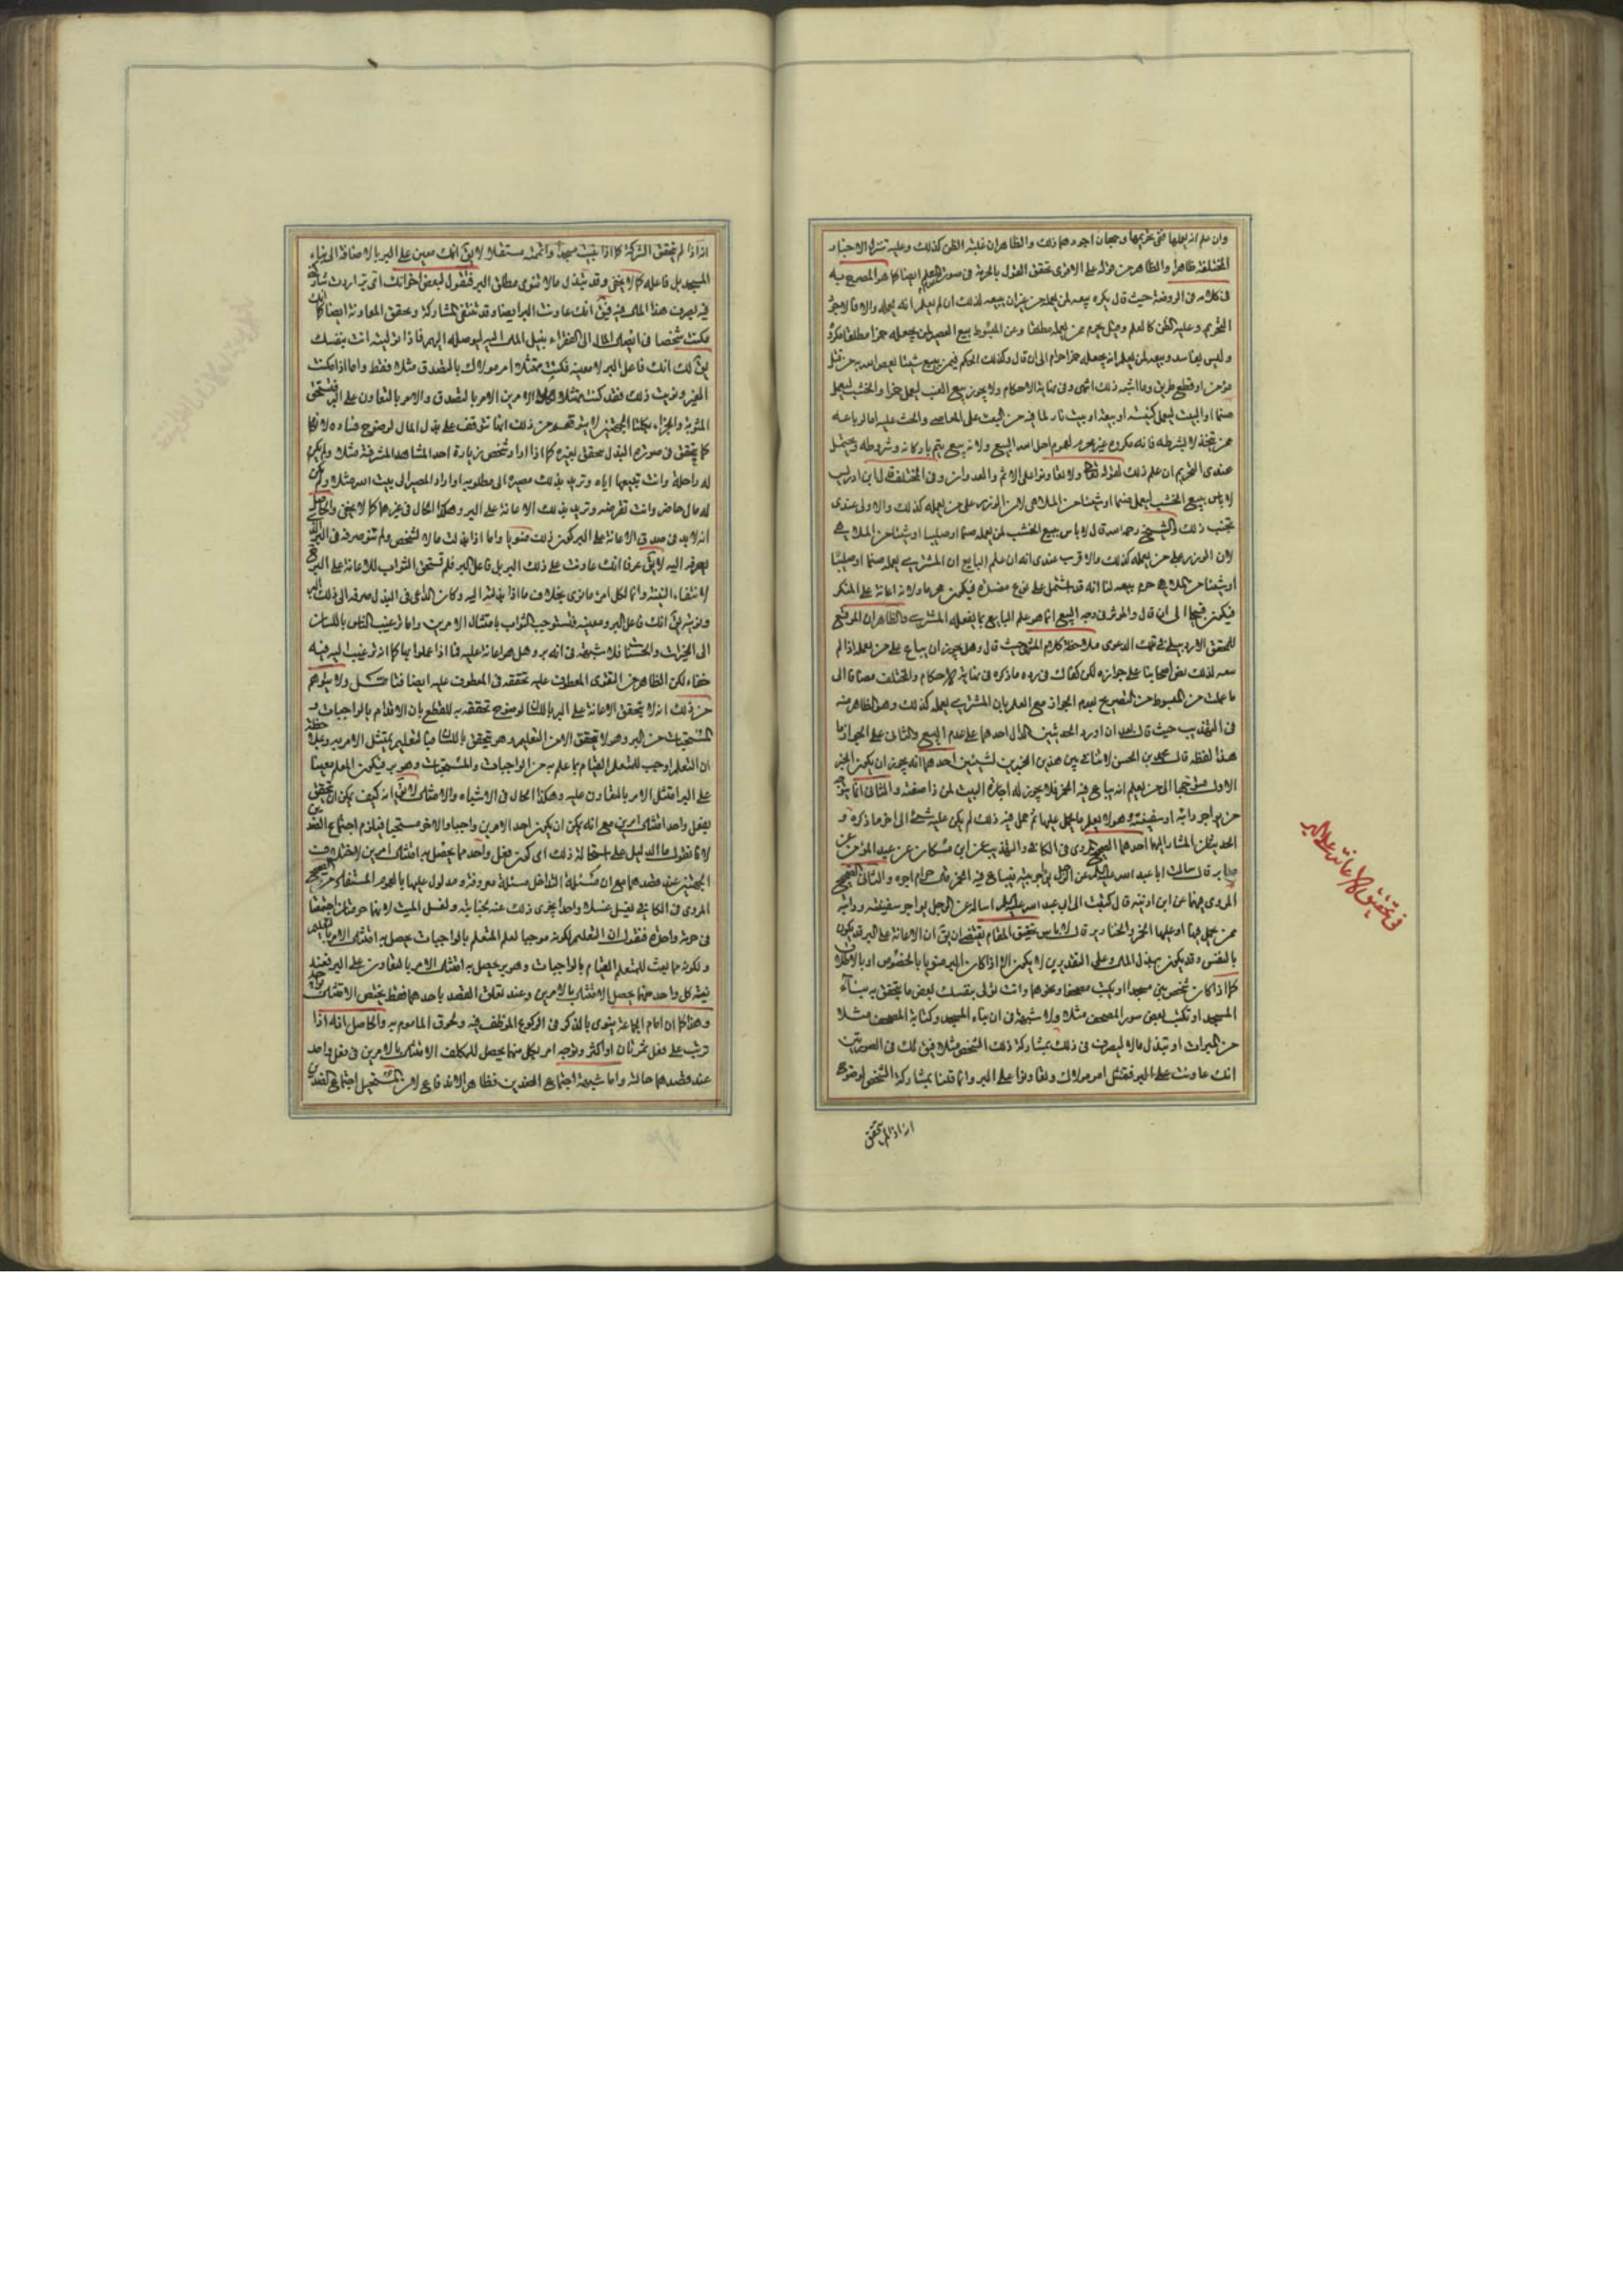 وان علم انه يعملها ففي تحريمها وجهان اجودهما ذلك والظاهر ان غلبة الظن كذلك وعليه تنزل الاخبار
المختلفة ظاهرا والظاهر من قوله على الاقوى تحقق القول بالحرمة في صورة العلم ايضا كما هو المصرح به
في كلامه في الروضة حيث قال يكره بيعه لمن يعمله من غير ان يبيعه لذلك ان لم يعلم انه يعمله والا فالاجود
التحريم وغلبة الظن كالعلم وقيل يحرم ممن يعمله مطلقا وعن المبسوط بيع العصير لمن يجعله خمرا مطلقا مكروه
وليس بفاسد وبيعه لمن يعلم انه يجعله خمرا حرام الى ان قال وكذلك الحكم فيمن يبيع شيئا يعصى الله به من قتل
مؤمن او قطع طريق وما اشبه ذلك انتهى وفي نهاية الاحكام ولا يجوز بيع العنب ليعمل خمرا والخشب ليعمل
صنما او البيت ليعمل كنيسة او بيعة او بيت نار لما فيه من البعث على المعاصي والحث عليه اما لو باعه
ممن يتخذه لا بشرطه فانه مكروه غير محرم لعموم احل الله البيع ولانه بيع يتم باركانه وشروطه ويحتمل
عندي التحريم ان علم ذلك لقوله تعالى ولا تعاونوا على الاثم والعدوان وفي المختلف قال ابن ادريس
لا باس ببيع الخشب ليعمل صنما او شيئا من الملاهي لان الوزر على من يعمله كذلك والاولى عندي
تجنب ذلك والشيخ رحمه الله قال لا باس ببيع الخشب لمن يعمله صنما او صليبا او شيئا من الملاهي
لان الوزر على من يعمله كذلك والاقرب عندي انه ان علم البايع ان المشتري يعمله صنما او صليبا
او شيئا من الملاهي حرم بيعه لنا انه قد اشتمل على نوع مفسدة فيكون محرما ولانه اعانة على المنكر
فيكون قبيحا الى ان قال والمؤثر في وجه البيع انما هو علم البايع بما يفعله المشتري والظاهر ان الموقع
للمحقق الاردبيلي في تلك الدعوى ملاحظة كلام المنتهى حيث قال وهل يجوز ان يباع على من يعمله اذا لم
بيعه لذلك نص اصحابنا على جوازه لكن كفاك في رده ما ذكره في نهاية الاحكام والمختلف مضافا الى
ما علمت من المبسوط من التصريح بعدم الجواز مع العلم بان المشتري يعمله كذلك وهو الظاهر منه
في التهذيب حيث قال بعد ان اورد الحديثين الدال احدهما على عدم البيع والثاني على الجواز ما
هذا لفظه قال محمد بن الحسن لا تنافي بين هذين الخبرين لشيئين احدهما انه يجوز ان يكون الخبر
الاول متوجها الى من يعلم انه يباع فيه الخمر فلا يجوز له اجارة البيت لمن ذا صفته والثاني انما يتوجه
من يواجر دابته او سفينته وهو لا يعلم ما يحمل عليها ثم حمل فيه ذلك لم يكن عليه شئ الى اخر ما ذكره و
الحديثان المشار اليهما احدهما الصحيح المروي في الكافي والتهذيب عن ابن مسكان عن عبد المؤمن عن
صابر قال سالت ابا عبد الله عليه السلام عن الرجل يؤاجر بيته فيباع فيه الخمر قال حرام اجره والثاني الصحيح
المروي فيهما عن ابن اذينة قال كتبت الى ابي عبد الله عليه السلام اساله عن الرجل يواجر سفينته ودابته
ممن يحمل فيها او عليها الخمر والخنازير قال لا باس تحقيق المقام يقتضي ان يق ان الاعانة على البر قد يكون
بالنفس وقد يكون ببذل المال وعلى التقديرين لا يكون الا اذا كان البر منويا بالخصوص او بالاطلاق
كما اذا كان شخص يبني مسجدا او يكتب مصحفا ونحوهما وانت تولى بنفسك لبعض ما يتحقق به بناء
المسجد او تكتب بعض سور المصحف مثلا ولا شبهة في ان بناء المسجد وكتابة المصحف مثلا
من المبرات او تبذل مالا ليصرف في ذلك بمشاركة ذلك الشخص مثلا فيق لك في الصورتين
انك عاونت على البر فتمتثل امر مولاك وتعاونوا على البر وانما قلنا بمشاركة الشخص لوضوح
انه اذا لم يتحقق
في تحقيق الاعانة على البر
انه اذا لم يتحقق الشركة كما اذا بنيت مسجدا واتممته مستقلا لا يق انك معين على البر بالاضافة الى بناء
المسجد بل فاعله كما لا يخفى وقد تبذل مالا تنوى مطلق البر فتقول لبعض اخوانك اي بر اردت
فيه يصرف هذا المال فيه فيق انك عاونت البر ايضا وقد تنتفي المشاركة ويتحقق المعاونة ايضا كما اذا
مكنت شخصا في ايصال المال الى الفقراء بنيل المال اليه ليوصله اليهم فاذا انلته انت بنفسك
يق لك انك فاعل البر لا معينه فكنت ممتثلا امر مولاك بالتصدق مثلا فقط واما اذا مكنت
الغير ونويت ذلك فقد كنت ممتثلا لكلا الامرين الامر بالتصدق والامر بالتعاون على البر فتستحق
المثوبة والجزاء بكلتا الجهتين لا يتوقف من ذلك انها تتوقف على بذل المال لوضوح فساده لانها
كما يتحقق في صورة البذل يتحقق بغيره كما اذا اراد شخص زيارة احد المشاهد المشرفة مثلا ولم يكن
له راحلة وانت تبيعها اياه وتريد بذلك مصيره الى مطلوبه او اراد المصير الى بيت الله مثلا ولم يكن
له مال حاضر وانت تقرضه وتريد بذلك الاعانة على البر وهكذا الحال في غيرهما كما لا يخفى والحاصل
انه لا بد في صدق الاعانة على البر كون ذلك منويا واما اذا بذلت مالا لشخص ولم تنو صرفه في البر
يصرفه اليه لا يق عرفا انك عاونت على ذلك البر بل فاعل البر فلم تستحق الثواب للاعانة على البر
لانتفاء النية وانما لكل امرء ما نوى بخلاف ما اذا بذلته اليه وكان الداعي في البذل صرفه الى ذلك البر
ونويته يق انك فاعل البر ومعينه فتستوجب الثواب بامتثال الامرين واما ترغيب الناس باللسان
الى الخيرات والحسنات فلا شبهة في انه بر وهل هو اعانة عليه فيما اذا عملوا بها كما انه ترغيب اليه فيه
خفاء لكن الظاهر من التقوى المعطوف عليه تحققه في المعطوف عليه ايضا فتامل ولا يتوهم
من ذلك انه لا يتحقق الاعانة على البر باللسان لوضوح تحققه به للقطع بان الاقدام بالواجبات و
المستحبات من البر وهو لا يتحقق الا من التعليم وهو يتحقق باللسان فبالتعليم يمتثل الامر به وبملاحظة
ان التعلم اوجب للمتعلم القيام بما علم به من الواجبات والمستحبات وهو بر فيكون المعلم معينا
على البر امتثل الامر بالتعاون عليه وهكذا الحال في الاشباه والامثال لا يق انه كيف يمكن ان يتحقق
بفعل واحد امتثال امرين مع انه يمكن ان يكون احد الامرين واجبا والاخر مستحبا فيلزم اجتماع الضدين
لانا نقول ما الدليل على استحالة ذلك اي كون فعل واحد مما يحصل به امتثال امرين لاختلاف
الجهتين عند قصدهما مع ان مسئلة التداخل مسئلة معروفة ومدلول عليها بالعموم المستفاد من الصحيح
المروي في الكافي يغسل غسلا واحدا يجزى ذلك عنه لجنابته ولغسل الميت لانهما حرمتان اجتمعتا
في حرمة واحدة فنقول ان التعليم لكونه موجبا لعلم المتعلم بالواجبات يحصل به امتثال الامر بالتعليم
ولكونه مما يبعث للمتعلم القيام بالواجبات وهو بر يحصل به امتثال الامر بالتعاون على البر فعند
نية كل واحد منهما يحصل الامتثال بالامرين وعند تعلق القصد باحدهما فقط يختص الامتثال به
وهذا كما ان امام الجماعة ينوى بالذكر في الركوع الموظف فيه ولحوق الماموم به والحاصل انه اذا
ترتب على فعل ثمرتان او اكثر وتوجه امر بكل منهما يحصل للمكلف الامتثال بالامرين في فعل واحد
عند قصدهما حالته واما شبهة اجتماع الضدين فظاهر الاندفاع لان المستحيل اجتماع الضدين